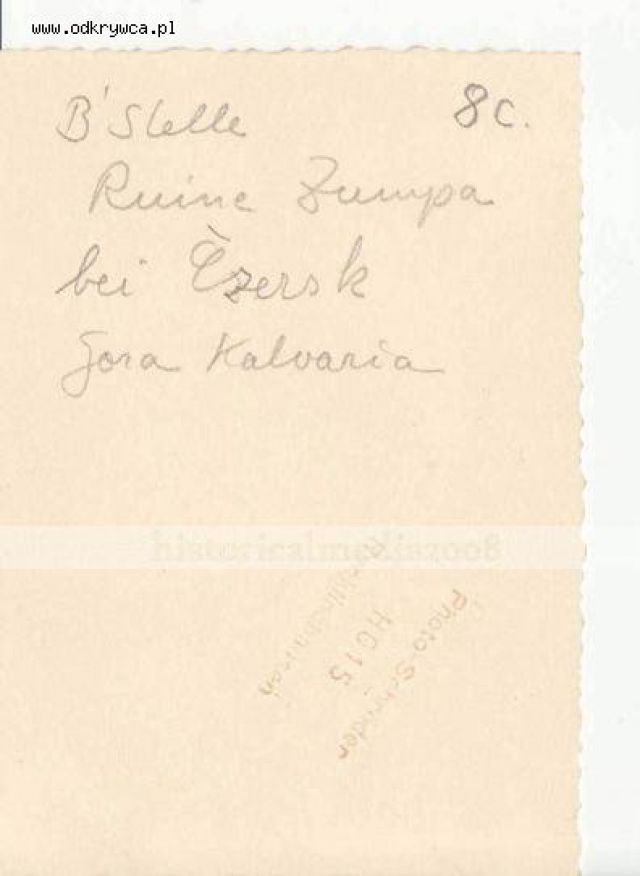 www.odkrywca.pl
B'Stelle 8c.
Ruine Zumpa
bei Czersk
Gora Kalvaria
historicalmedia2008
Photo-Schröder
HO15